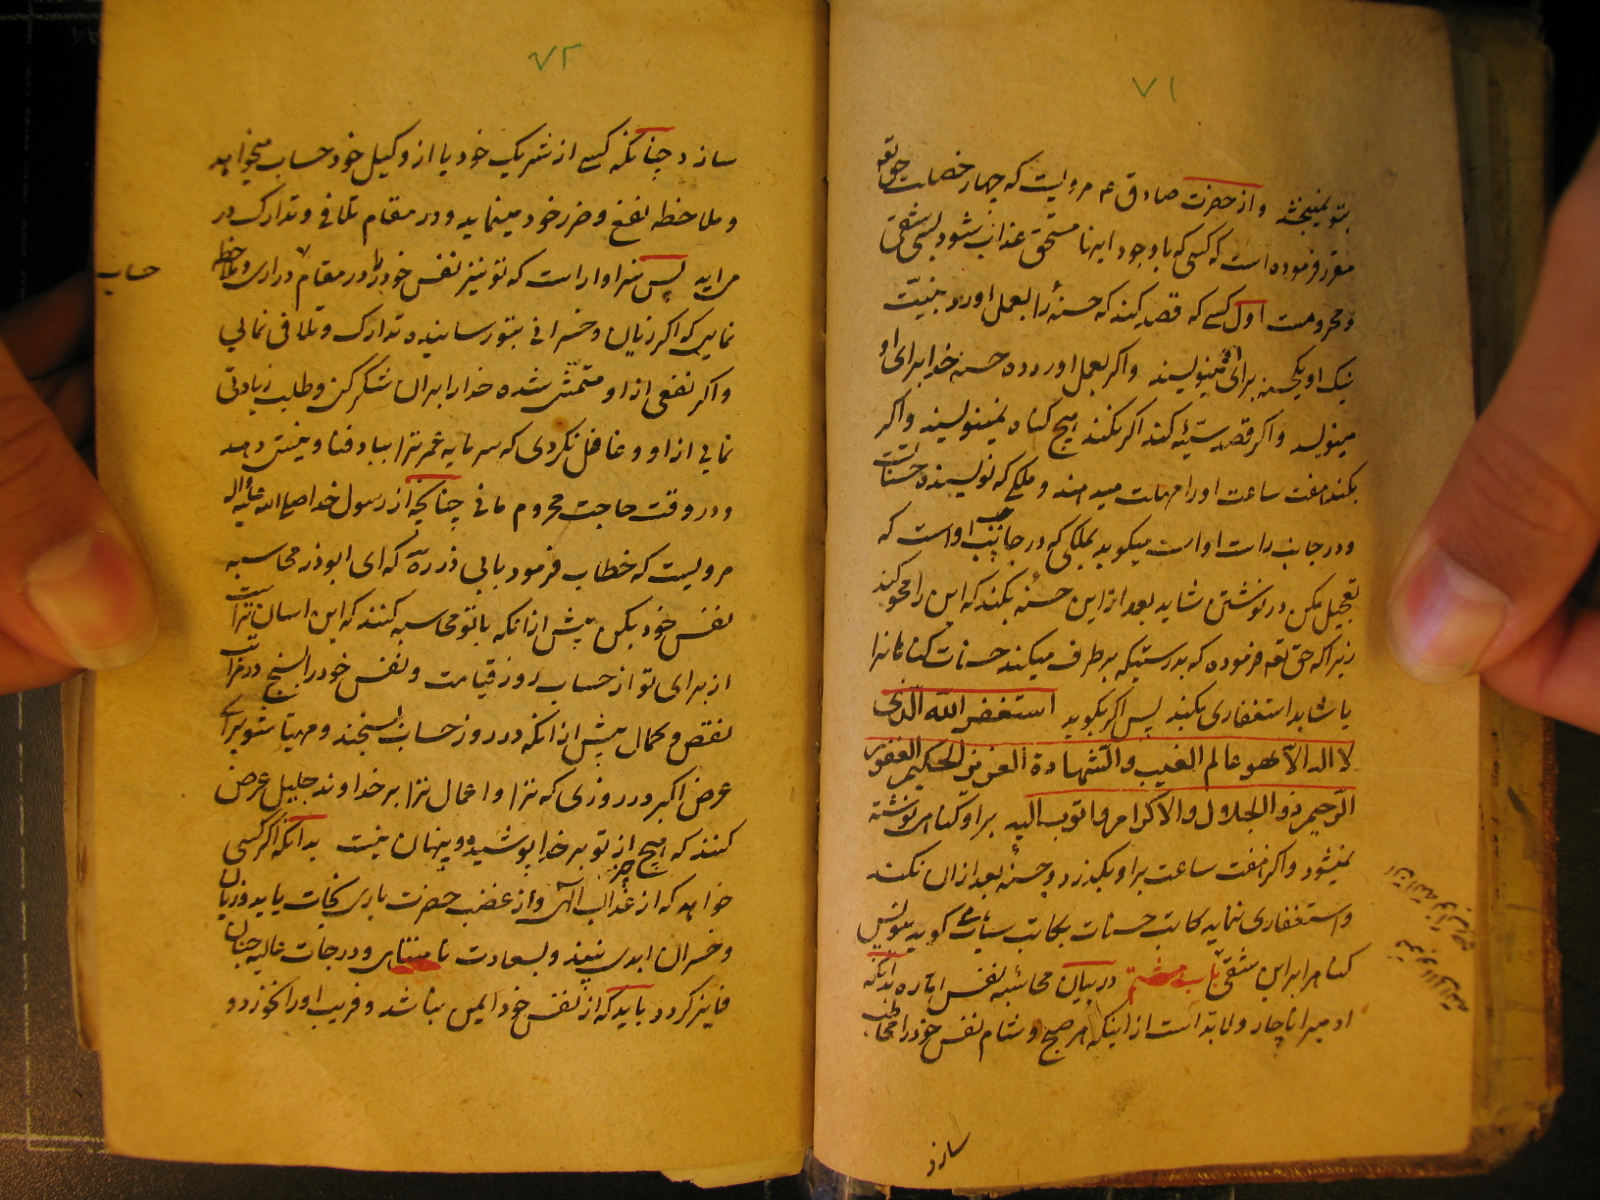 ۷۱
بتو نمیبخشد و از حضرت صادق ع مرویست که چهار خصلت حق تعه
مقرر فرموده است که کسی که با وجود اینها مستحق عذاب شود بسی شقی
و محرومست اول کسی که قصد کند که حسنهٔ را بعمل اورد بنیت
نیک او یکحسنه برای او مینویسند و اکر بعمل اورد ده حسنه خدا برای او
مینویسد و اکر قصد سیّئه کند اکر نکند هیچ کناه نمینویسند و اکر
بکند هفت ساعت او را مهلت میدهند و ملکی که نویسنده حسنات است
و در جانب راست او است میکوید بملکی که در جانب چپ او است که
تعجیل مکن در نوشتن شاید بعد از این حسنهٔ بکند که این را محو کند
زیرا که حق تعه فرموده که بدرستیکه بر طرف میکند حسنات کناهانرا
یا شاید استغفاری بکند پس اکر بکوید استغفر الله الّذی
لا اله الّا هو عالم الغیب والشّهادة العزیز الحکیم الغفور
الرّحیم ذو الجلال والاکرام و اتوب الیه بر او کناهی نوشته
نمیشود و اکر هفت ساعت بر او بکذرد و حسنهٔ بعد از ان نکند
و استغفاری ننماید کاتب حسنات بکاتب سیئات کوید بنویس
کناه را بر این شقی باب هشتم در بیان محاسبه نفس امّاره بدانکه
ادمیرا ناچار و لا بدّ است از اینکه هر صبح و شام نفس خود را مخاطب
سازد
۷۲
سازد چنانکه کسی از شریک خود یا از وکیل خود حساب میخواهد
و ملاحظه نفع و ضرر خود مینماید و در مقام تلافی و تدارک در
می اید پس سزاوار است که تو نیز نفس خود را در مقام دراری و ملاحظه
حساب
نمایی که اکر زیان و خسرانی بتو رسانیده تدارک و تلافی نمایی
و اکر نفعی از او متمشّی شده خدا را بر ان شکر کنی و طلب زیادتی
نمایی از او و غافل نکردی که سرمایه عمر ترا بباد فنا و نیستی دهد
و در وقت حاجت محروم مانی چنانچه از رسول خدا صلی الله علیه واله
مرویست که خطاب فرمود بابی ذر ره که ای ابوذر محاسبه
نفس خود بکن پیش از انکه با تو محاسبه کنند که این اسان تر است
از برای تو از حساب روز قیامت و نفس خود را بسنج در مراتب
نقص و کمال پیش از انکه در روز حساب بسنجند و مهیّا شو برای
عرض اکبر در روزی که ترا و اعمال ترا بر خداوند جلیل عرض
کنند که هیچ چیز از تو بر خدا پوشیده و پنهان نیست بدانکه اکر کسی
خواهد که از عذاب الهی و از غضب حضرت باری نجات یابد و زیان
و خسران ابدی نبیند و بسعادت نامتناهی و درجات عالیه جنان
فایز کردد باید که از نفس خود ایمن نباشد و فریب او را نخورد و